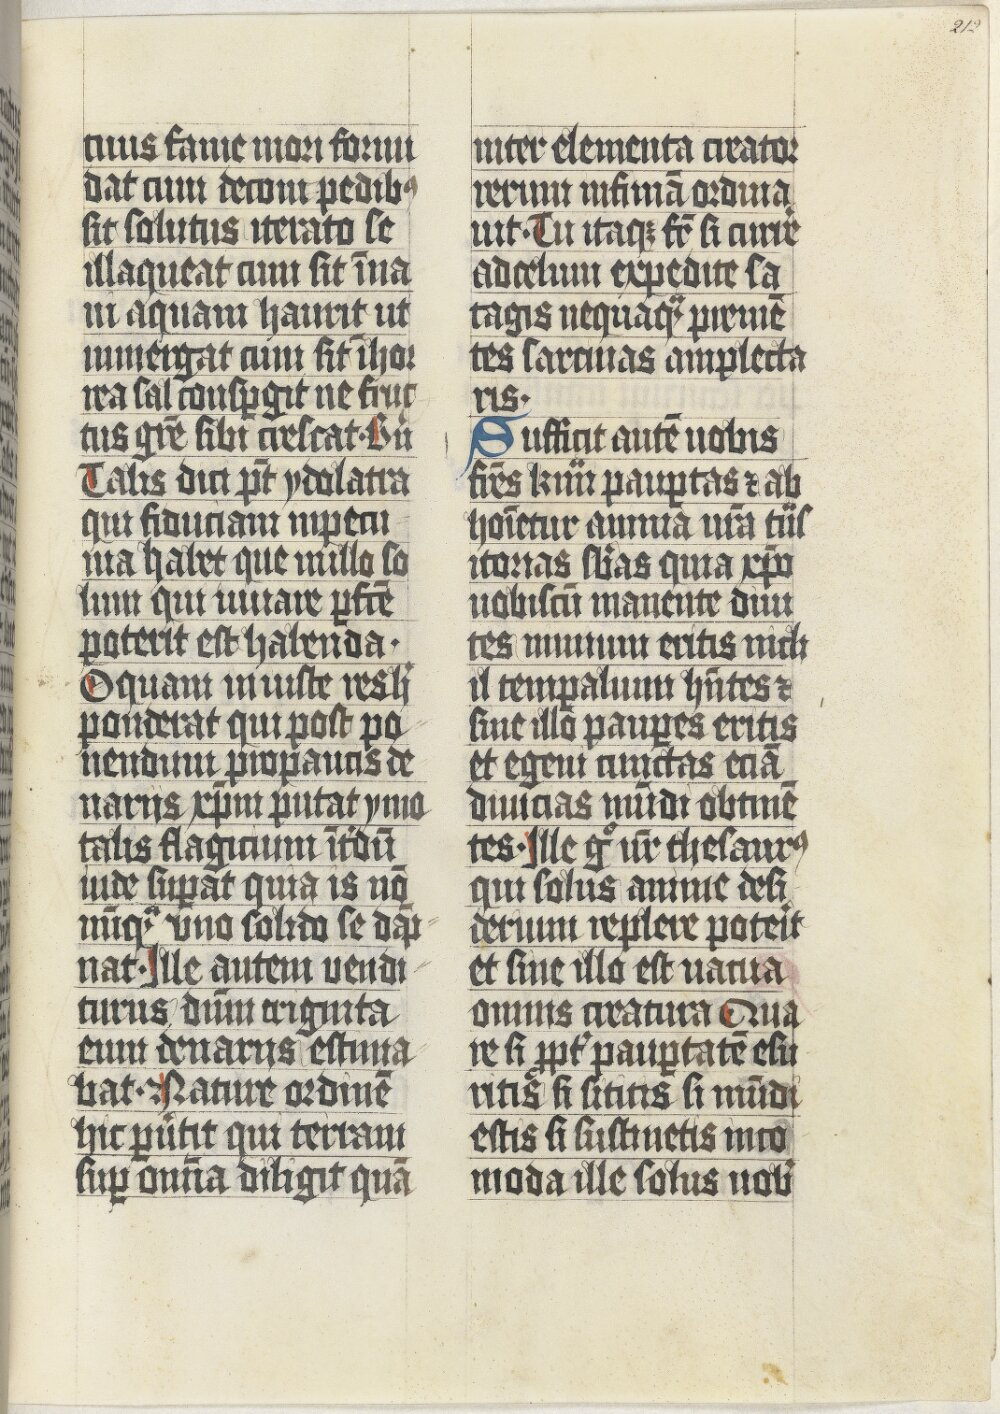 212
cuius fame mori formi
dat cum decom pedibꝰ
sit solutus iterato se
illaqueat cum sit ī̄ma
ni aquam haurit ut
inmergat cum sit ī hor
rea sal conspgit ne fruc
tus gr̄e sibi crescat. Bn̄
Talis dici pt̄ ydolatra
qui fiduciam in pecu
nia habet que in illo so
lum qui iuuare pfcē
poterit est habenda.
O quam iniuste res hͥ
ponderat qui post po
nendum pro paucis de
nariis xp̄m putat ymo
talis flagicium
iude supat quia is nō
nūqͣ vno solido se dāp
nat. Ille autem vendi
turus dūm triginta
eum denariis estima
bat. Nature ordinē
hic putit qui terram
sup omīa diligit quā
inter elementa creator
rerum infimā ordina
uit. Tu itaqꝫ fr̄ si curre
ad celum expedite sa
tagis nequaqͣ premē
tes sarcinas amplecta
ris.
Sufficit autē uobis
frēs km̄i pauptas ⁊ ab
hoīetur anima nrā
itorias sbās quia xp̄o
uobiscū manente diui
tes nimium eritis nich
il tempalium hn̄tes ⁊
sine illo paupes eritis
et egeni cunctas eciā
diuicias mūdi obtinē
tes. Ille gͦ ur̄ thesaurꝰ
qui solus anime desi
derium replere poterit
et sine illo est uacua
omnis creatura Qua
re si ppt̄ pauptatē esu
ritis si sititis si nūdi
estis si sustinetis inco
moda ille solus uobͥ